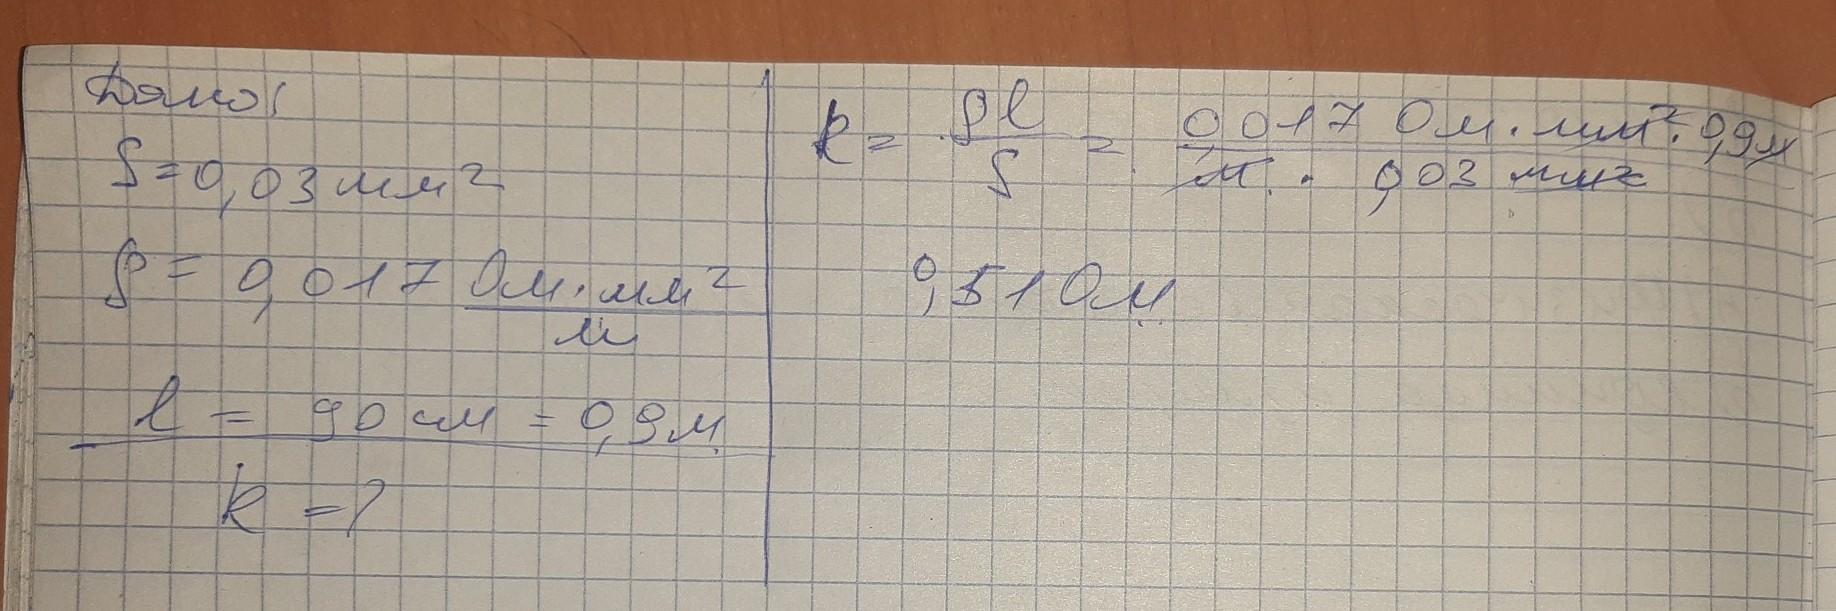 Дано:
S = 0,03 мм²
ρ = 0,017 Ом·мм²/м
l = 90 см = 0,9 м
R = ?
R = ρl/S = 0,017 Ом·мм²·0,9м / м · 0,03 мм²
0,51 Ом